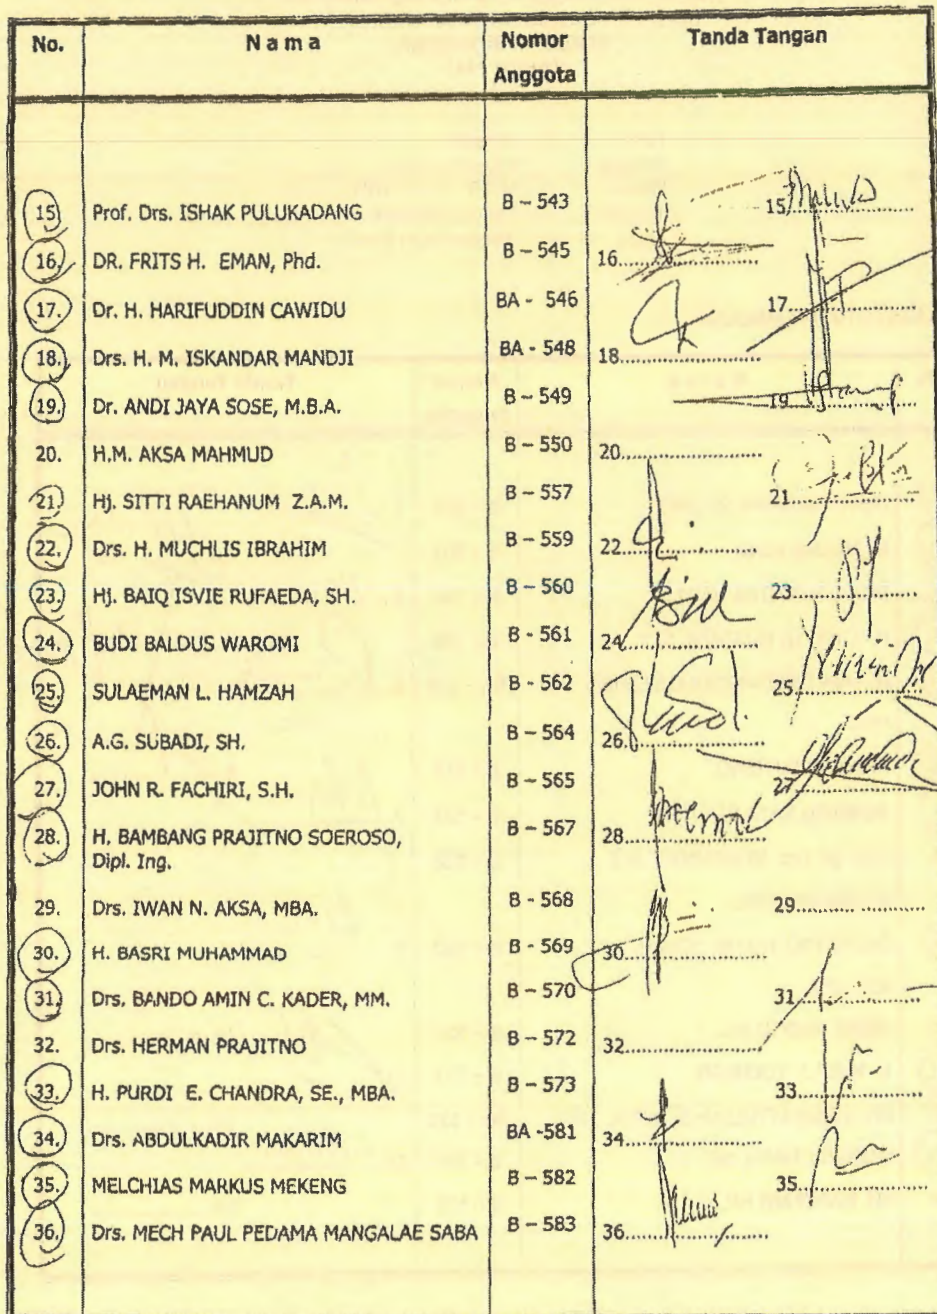 No. Nama Nomor Anggota Tanda Tangan
15. Prof. Drs. ISHAK PULUKADANG B – 543 15
16. DR. FRITS H. EMAN, Phd. B – 545 16
17. Dr. H. HARIFUDDIN CAWIDU BA - 546 17
18. Drs. H. M. ISKANDAR MANDJI BA - 548 18
19. Dr. ANDI JAYA SOSE, M.B.A. B – 549 19
20. H.M. AKSA MAHMUD B – 550 20
21. Hj. SITTI RAEHANUM Z.A.M. B – 557 21
22. Drs. H. MUCHLIS IBRAHIM B – 559 22
23. Hj. BAIQ ISVIE RUFAEDA, SH. B – 560 23
24. BUDI BALDUS WAROMI B - 561 24
25. SULAEMAN L. HAMZAH B - 562 25
26. A.G. SUBADI, SH. B – 564 26
27. JOHN R. FACHIRI, S.H. B – 565 27
28. H. BAMBANG PRAJITNO SOEROSO, B – 567 28
Dipl. Ing.
29. Drs. IWAN N. AKSA, MBA. B - 568 29
30. H. BASRI MUHAMMAD B - 569 30
31. Drs. BANDO AMIN C. KADER, MM. B – 570 31
32. Drs. HERMAN PRAJITNO B – 572 32
33. H. PURDI E. CHANDRA, SE., MBA. B – 573 33
34. Drs. ABDULKADIR MAKARIM BA -581 34
35. MELCHIAS MARKUS MEKENG B – 582 35
36. Drs. MECH PAUL PEDAMA MANGALAE SABA B – 583 36